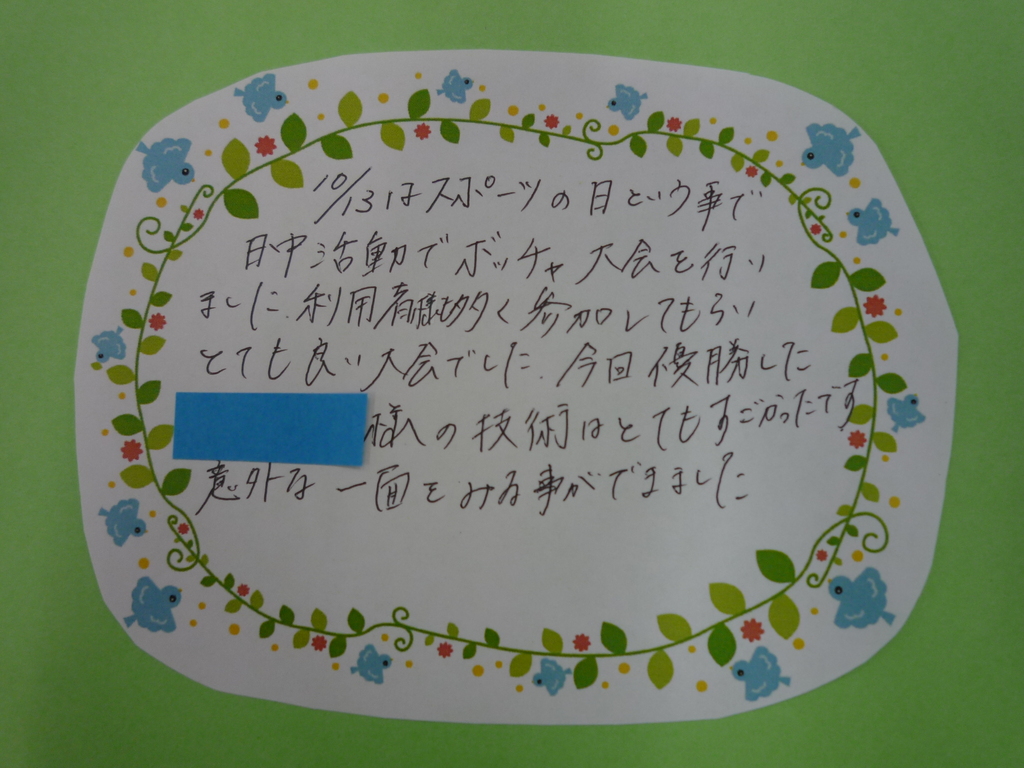 10/13はスポーツの日という事で
日中活動でボッチャ大会を行い
ました.利用者様も多く参加してもらい
とても良い大会でした.今回優勝した
様の技術はとてもすごかったです
意外な一面をみる事ができました